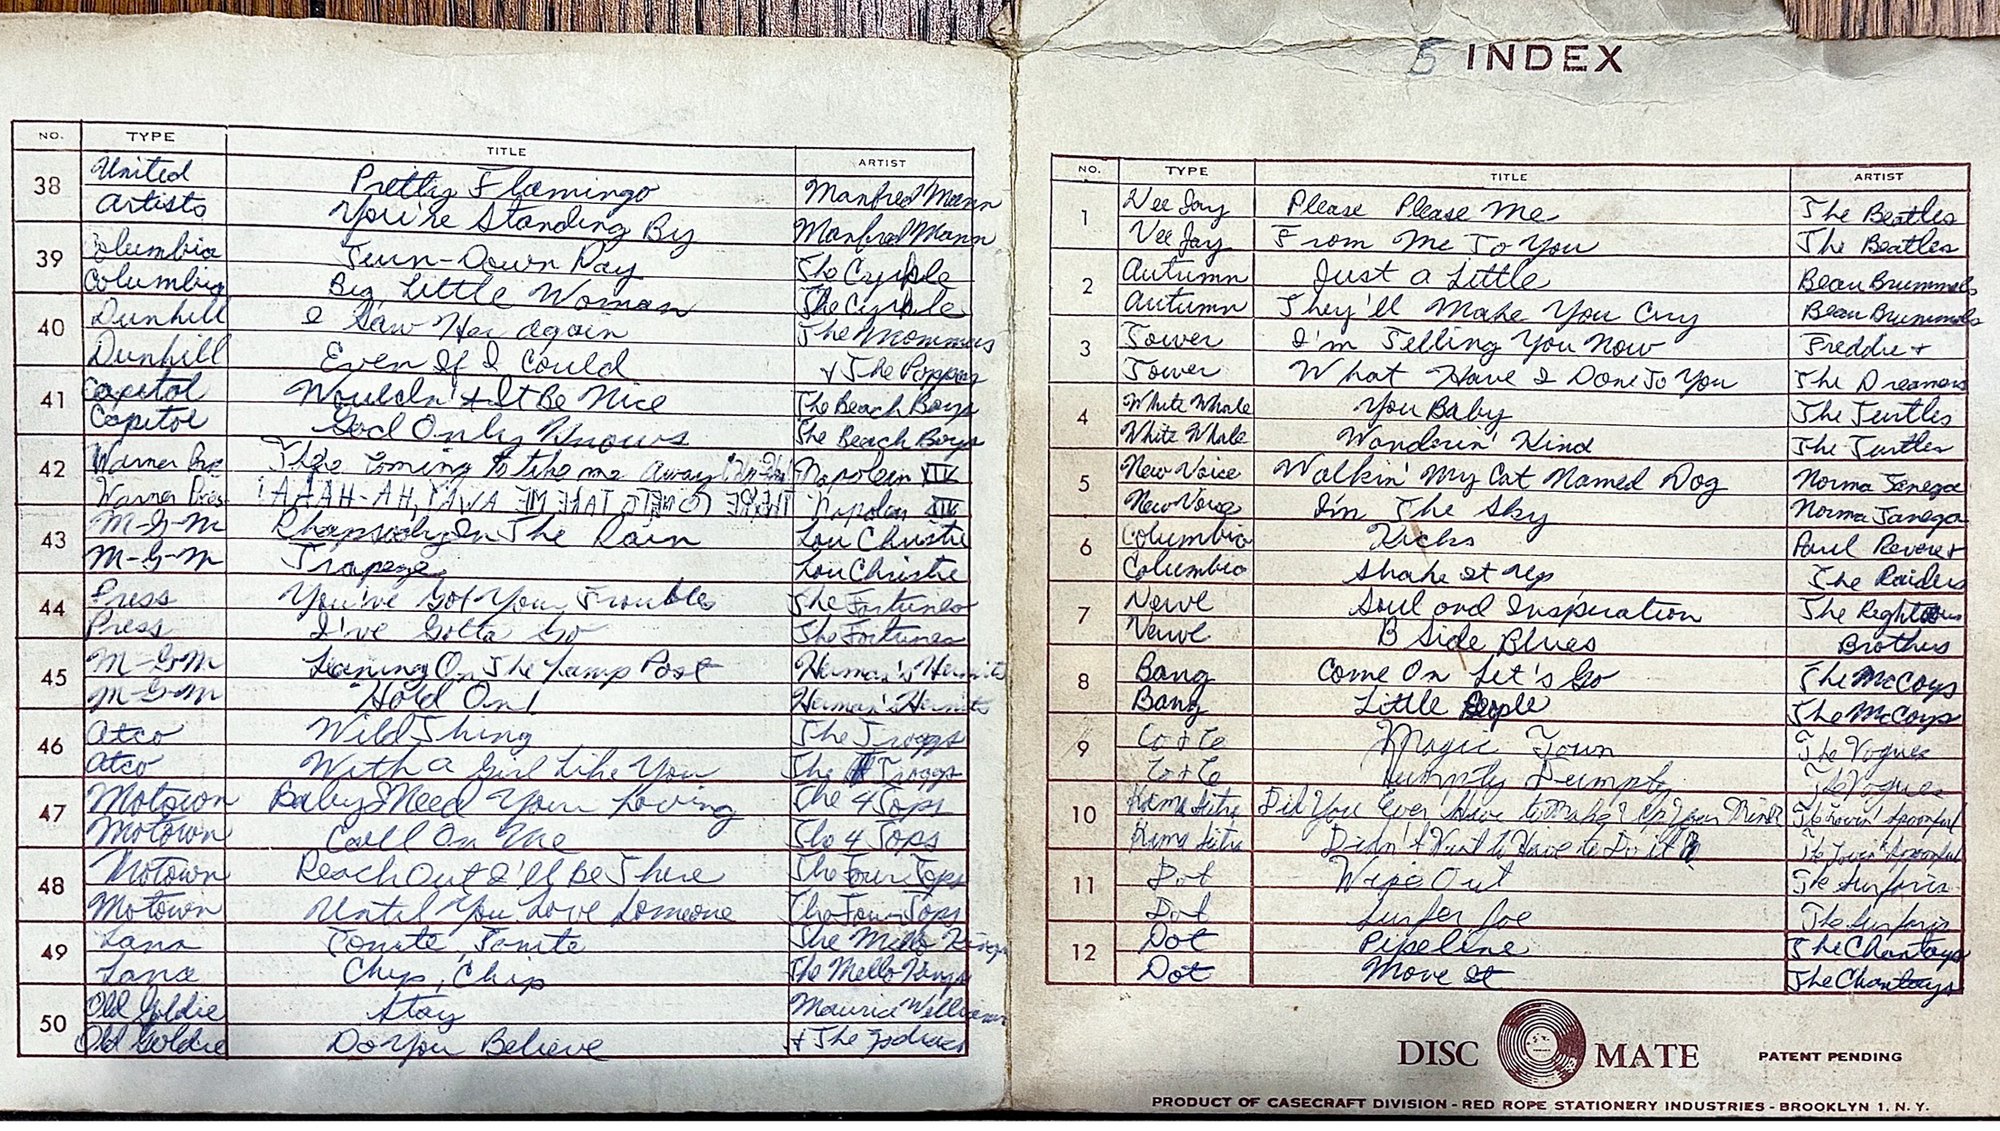 NO. TYPE TITLE ARTIST
38 United Pretty Flamingo Manfred Mann
Artists You're Standing By Manfred Mann
39 Columbia Turn-Down Day The Cyrkle
Columbia Big, Little Woman The Cyrkle
40 Dunhill I Saw Her Again The Mommas
Dunhill Even If I Could + The Poppas
41 Capitol Wouldn't It Be Nice The Beach Boys
Capitol God Only Knows The Beach Boys
42 Warner Bros Coming to take me Away Napolein XIV
Warner Bros !AAAH-AH, YAWA EM EKAT OT Napolein XIV
43 M-G-M Rhapsody In The Rain Lou Christie
M-G-M Trapeze Lou Christie
44 Press You've Got Your Troubles The Fortunes
Press I've Gotta Go The Fortunes
45 M-G-M Leaning On The Lamp Post Herman's Hermits
M-G-M Hold On! Herman's Hermits
46 Atco Wild Thing The Troggs
Atco With a Girl Like You The Troggs
47 Motown Baby I Need Your Loving The 4 Tops
Motown Call On Me The 4 Tops
48 Motown Reach Out I'll Be There The Four Tops
Motown Until You Love Someone The Four Tops
49 Lana Tonite, Tonite The Mello Kings
Lana Chip, Chip The Mello Kings
50 Old Goldie Stay Maurice Williams
Old Goldie Do You Believe + The Zodiacs
5 INDEX
NO. TYPE TITLE ARTIST
1 Vee Jay Please Please Me The Beatles
Vee Jay From Me To You The Beatles
2 Autumn Just a Little Beau Brummels
Autumn They'll Make You Cry Beau Brummels
3 Tower I'm Telling You Now Freddie +
Tower What Have I Done To You The Dreamers
4 White Whale You Baby The Turtles
White Whale Wanderin' Kind The Turtles
5 New Voice Walkin' My Cat Named Dog Norma Tanega
New Voice I'm The Sky Norma Tanega
6 Columbia Kicks Paul Revere +
Columbia Shake It Up The Raiders
7 Verve Soul and Inspiration The Righteous
Verve B Side Blues Brothers
8 Bang Come On Let's Go The McCoys
Bang Little People The McCoys
9 Co + Ce Magic Town The Vogues
Co + Ce Humpty Dumpty The Vogues
10 Kama Sutra Did You Ever Have to Make Up Your Mind The Lovin' Spoonful
Kama Sutra Didn't Want to Have to Do it The Lovin' Spoonful
11 Dot Wipe Out The Surfaris
Dot Surfer Joe The Surfaris
12 Dot Pipeline The Chantays
Dot Move It The Chantays
DISC MATE PATENT PENDING
PRODUCT OF CASECRAFT DIVISION - RED ROPE STATIONERY INDUSTRIES - BROOKLYN 1, N.Y.